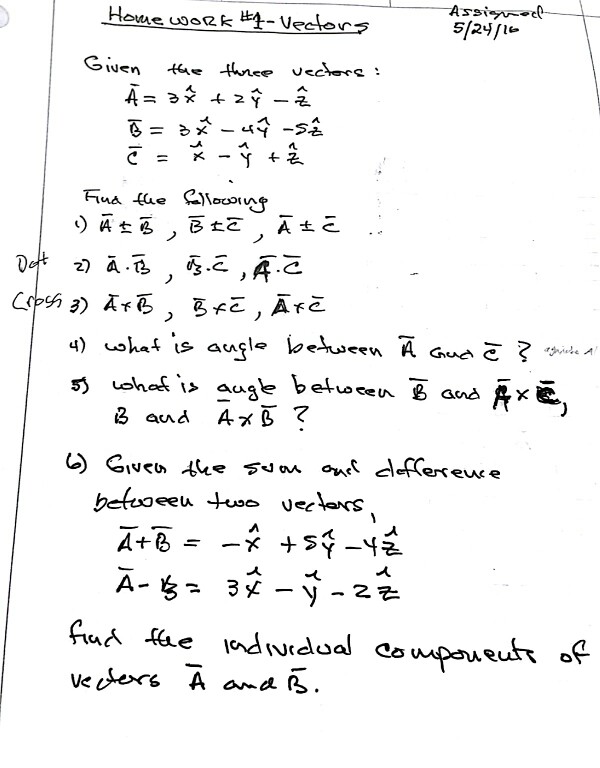 Homework #1 - Vectors
Assigned
5/24/16
Given the three vectors:
A̅ = 3x̂ + 2ŷ - ẑ
B̅ = 3x̂ - 4ŷ - 5ẑ
C̅ = x̂ - ŷ + ẑ
Find the following
1) A̅ ± B̅ , B̅ ± C̅ , A̅ ± C̅
Dot 2) A̅ · B̅ , B̅ · C̅ , A̅ · C̅
Cross 3) A̅ × B̅ , B̅ × C̅ , A̅ × C̅
4) what is angle between A̅ and C̅ ?
5) what is angle between B̅ and A̅ × C̅,
B and A̅ × B̅ ?
6) Given the sum and difference
between two vectors,
A̅ + B̅ = -x̂ + 5ŷ - 4ẑ
A̅ - B̅ = 3x̂ - ŷ - 2ẑ
find the individual components of
vectors A̅ and B̅.